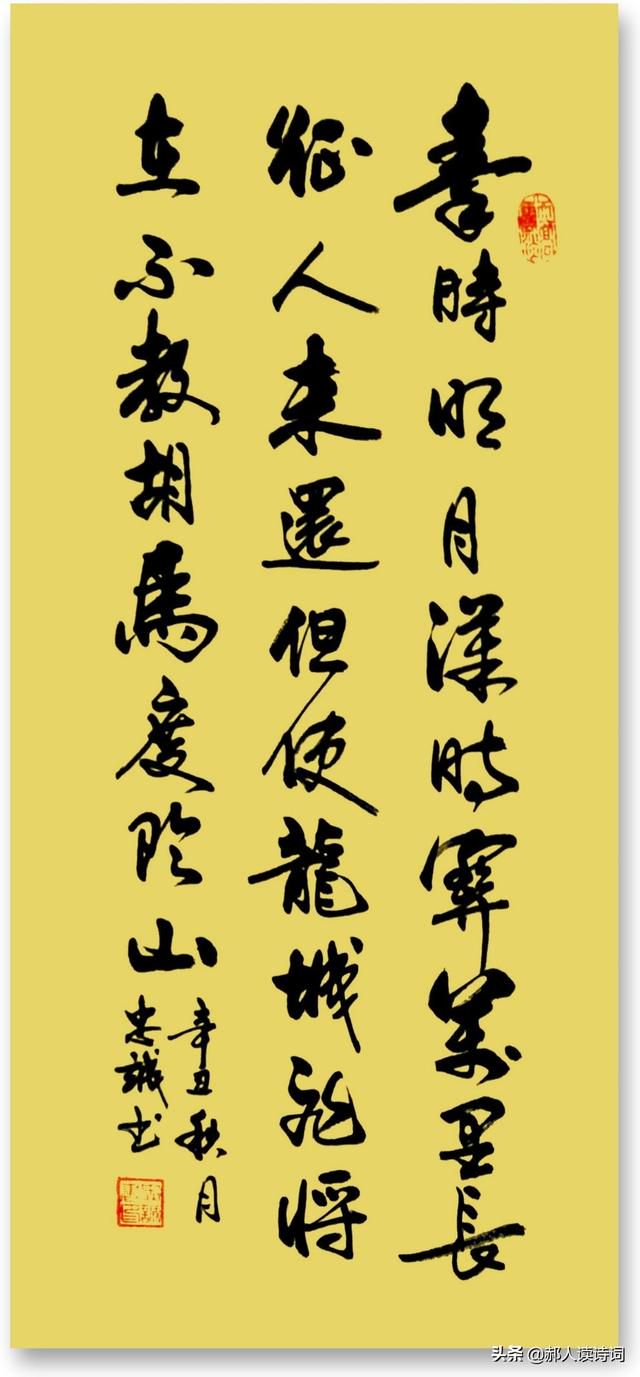 秦時明月漢時關萬里長
征人未還但使龍城飛將
在不教胡馬度陰山
辛丑秋月
忠誠书
头条 @郝人读诗词